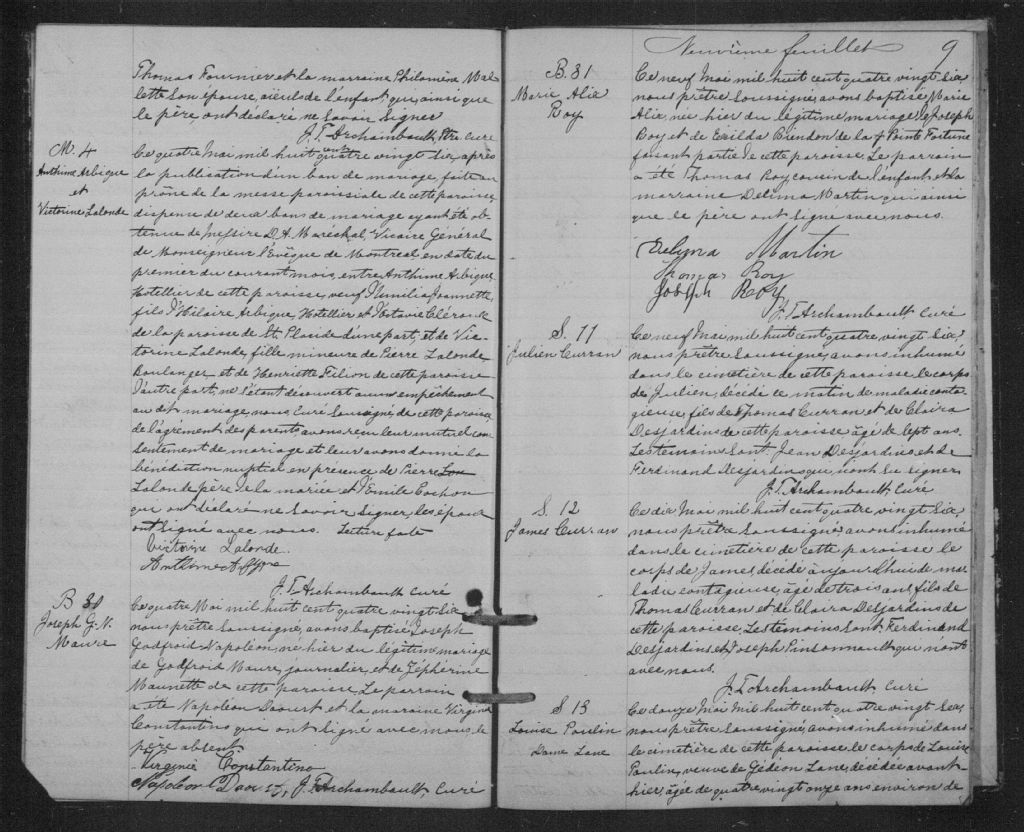 Thomas Fournier et la marraine Philomène Mal
lette son épouse, aïeuls de l'enfant, qui, ainsi que
le père, ont déclaré ne savoir signer
J. T. Archambault, Ptre Curé
M. 4
Anthime Arbique
et
Victorine Lalonde
Ce quatre Mai mil huit cent quatre vingt six, après
la publication d'un ban de mariage, faite au
prône de la messe paroissiale de cette paroisse,
dispense de deux bans de mariage ayant été ob-
tenue de Messire D. A. Maréchal, Vicaire Général
de Monseigneur l'Evêque de Montreal en date du
premier du courant mois, entre Anthime Arbique
Hotellier de cette paroisse, veuf Joannette
fils d'Hilaire Arbique, Hotellier et d'Octavie Cléroux
de la paroisse de St. Placide d'une part, et de Vic-
torine Lalonde, fille mineure de Pierre Lalonde
Boulanger et de Henriette Filion de cette paroisse
d'autre part, ne s'étant découvert aucun empêchement
au dit mariage, nous, Curé soussigné, de cette paroisse,
de l'agrément des parents avons reçu leur mutuel con
sentement de mariage et leur avons donné la
bénédiction nuptiale en présence de Pierre
Lalonde père de la mariée et d'Emile
qui ont déclaré ne savoir signer, les époux
ont signé avec nous. Lecture faite
Victorine Lalonde
J. T. Archambault, Curé
B 30
Joseph G. N.
Maure
Ce quatre Mai mil huit cent quatre vingt six
nous prêtre soussigné, avons baptisé, Joseph
Godfroid Napoléon, né hier du légitime mariage
de Godfroid Maure, journalier, et de Zéphérine
Maunette de cette paroisse. Le parrain
a été Napoleon Daoust et la maraine Virginie
Constantino qui ont signé avec nous, le
père absent.
Virginie Constantino
Napoleon Daoust, J. T. Archambault, Curé
Neuvième feuillet 9
B. 31
Marie Alia
Roy
Ce neuf Mai mil huit cent quatre vingt six
nous prêtre soussigné, avons baptisé Marie
Alia, née hier du légitime mariage de Joseph
Roy et de Exilda Brindon de la Pointe Fortune
faisant partie de cette paroisse. Le parrain
a été Thomas Roy cousin de l'enfant et la
marraine Delima Martin qui ainsi
que le père ont signé avec nous.
Delyma Martin
Thomas Roy
Joseph Roy
J. T. Archambault Curé
S. 11
Julien Curran
Ce neuf Mai mil huit cent quatre vingt six,
nous prêtre soussigné, avons inhumé
dans le cimetière de cette paroisse le corps
de Julien, décédé ce matin de maladie conta
gieuse, fils de Thomas Curran et de Claira
Desjardins de cette paroisse, âgé de sept ans.
Les témoins sont, Jean Desjardins et de
Ferdinand Desjardins qui n'ont su signer
J. T. Archambault, Curé
S. 12
James Curran
Ce dix Mai mil huit cent quatre vingt six,
nous prêtre soussigné avons inhumé
dans le cimetière de cette paroisse le
corps de James, décédé aujourd'hui de ma
ladie contagieuse, âgé de trois ans, fils de
Thomas Curran et de Claira Desjardins de
cette paroisse. Les témoins sont, Ferdinand
Desjardins et Joseph Pinsonnault qui n'ont
avec nous.
J. T. Archambault, Curé
S 13
Louise Poulin
Dame Lane
Ce douze Mai mil huit cent quatre vingt six,
nous prêtre soussigné, avons inhumé dans
le cimetière de cette paroisse le corps de Louise
Poulin, veuve de Gédéon Lane, décédée avant
hier, âgée de quatre vingt onze ans environ de